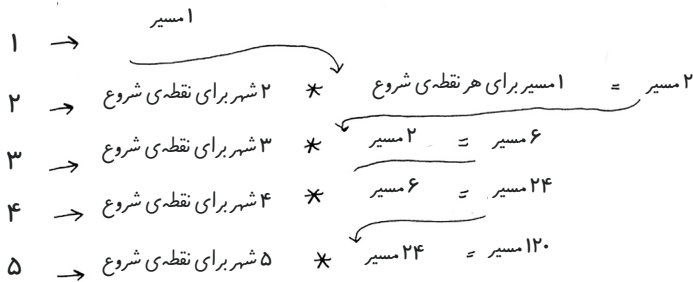 ۱ → ۱ مسیر
۲ → ۲ شهر برای نقطه‌ی شروع * ۱ مسیر برای هر نقطه‌ی شروع = ۲ مسیر
۳ → ۳ شهر برای نقطه‌ی شروع * ۲ مسیر = ۶ مسیر
۴ → ۴ شهر برای نقطه‌ی شروع * ۶ مسیر = ۲۴ مسیر
۵ → ۵ شهر برای نقطه‌ی شروع * ۲۴ مسیر = ۱۲۰ مسیر